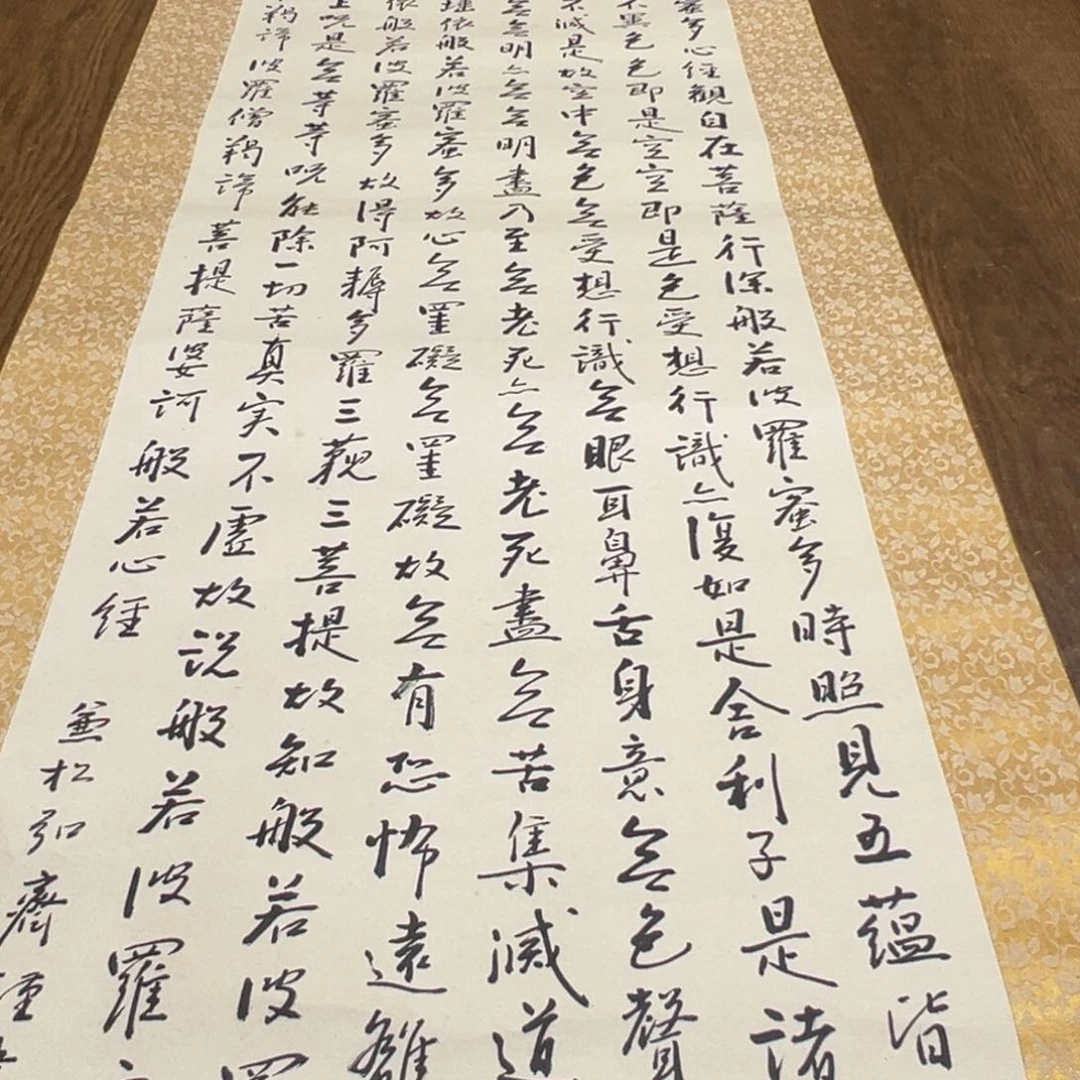 蜜多心經觀自在菩薩行深般若波羅蜜多時照見五蘊皆
不異色色即是空空即是色受想行識亦復如是舍利子是諸
不減是故空中無色無受想行識無眼耳鼻舌身意無色聲
無無明亦無無明盡乃至無老死亦無老死盡無苦集滅道
埵依般若波羅蜜多故心無罣礙無罣礙故無有恐怖遠離
依般若波羅蜜多故得阿耨多羅三藐三菩提故知般若波羅
上呪是無等等呪能除一切苦真实不虛故说般若波羅
羯諦波羅僧羯諦菩提薩婆訶般若心経
兼松弘齋謹